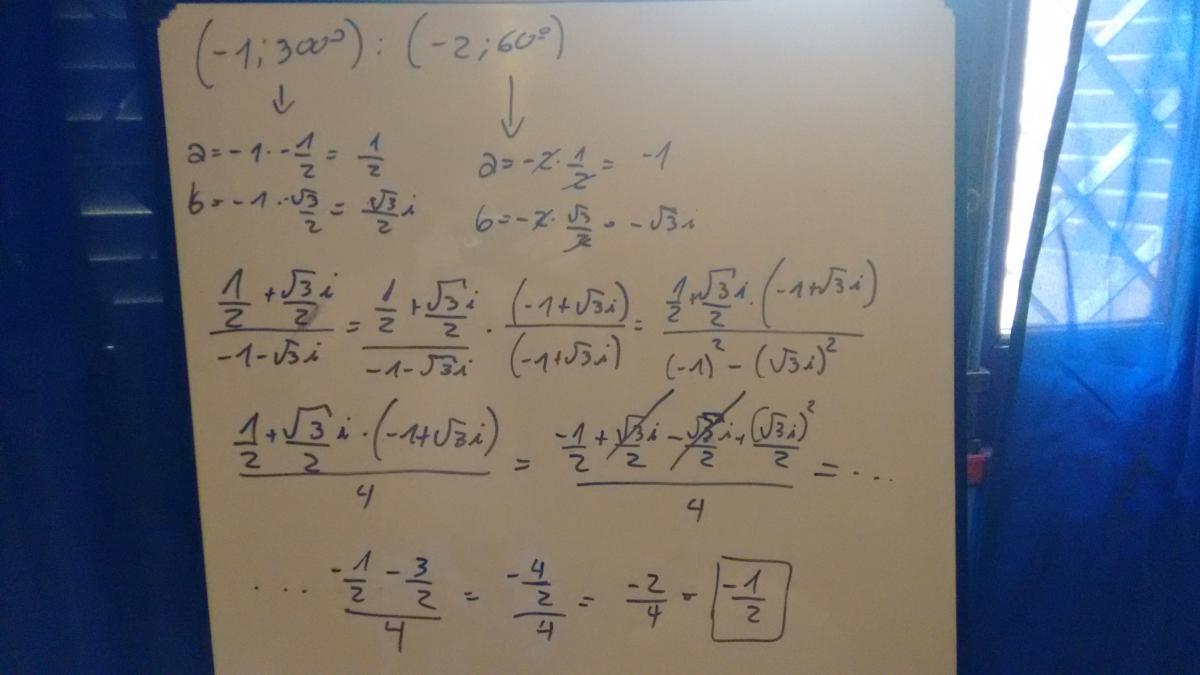 (-1; 300°) : (-2; 60°)
↓ ↓
a = -1 · -1/2 = 1/2 a = -2 · 1/2 = -1
b = -1 · -√3/2 = √3/2 i b = -2 · √3/2 = -√3i
(1/2 + √3/2 i)/(-1-√3i) = (1/2 + √3/2 i)/(-1-√3i) · (-1+√3i)/(-1+√3i) = (1/2 + √3/2 i · (-1+√3i))/((-1)² - (√3i)²)
(1/2 + √3/2 i · (-1+√3i))/4 = (-1/2 + √3/2 i - √3/2 i + (√3i)²/2)/4 = ...
... (-1/2 - 3/2)/4 = (-4/2)/4 = -2/4 = -1/2